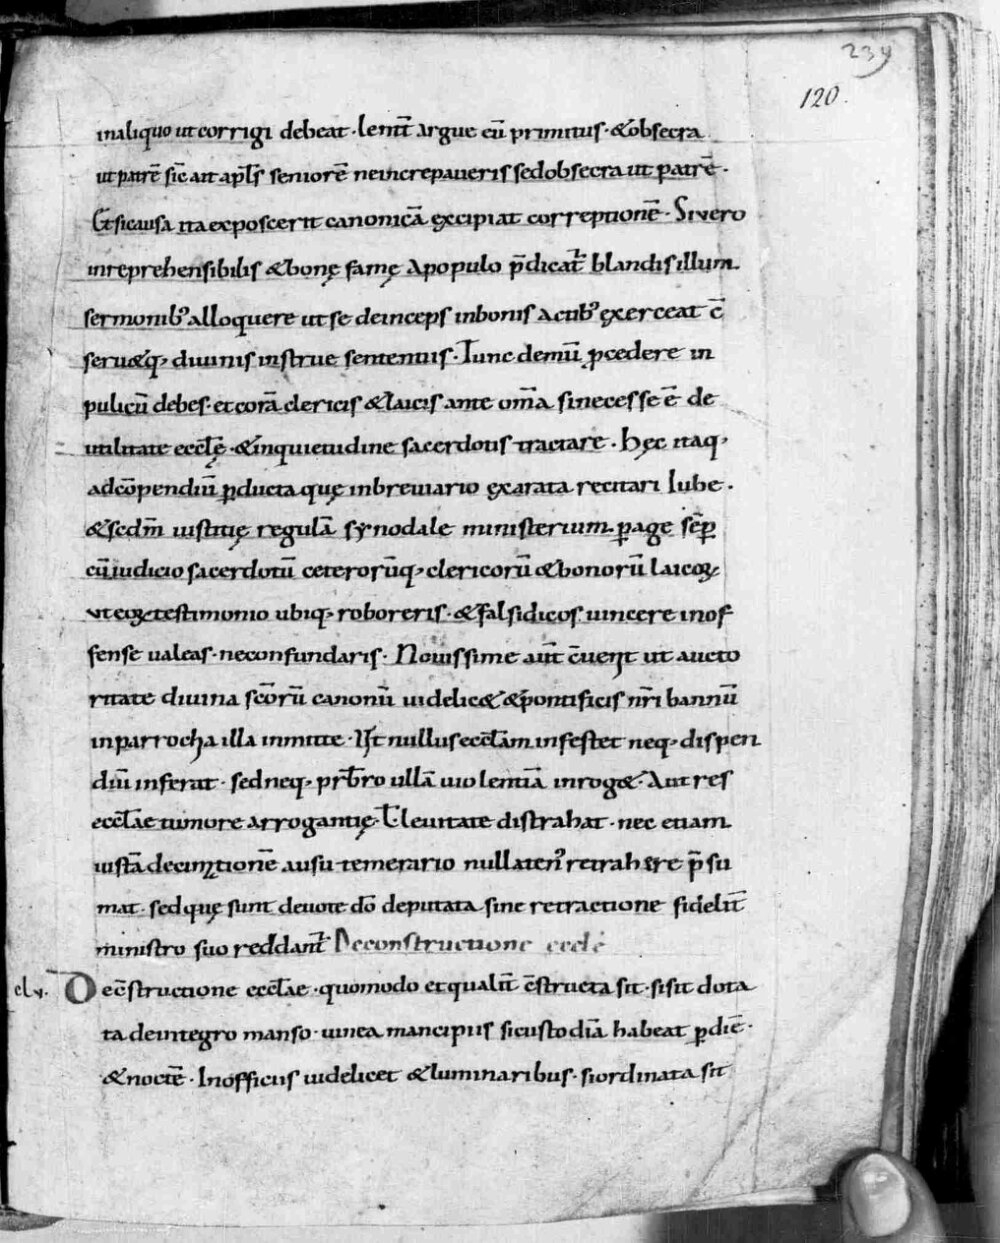 239
120.
inaliquo ut corrigi debeat · lenit̄ argue eū primitus · &obsecra
ut patrē sic̄ ait apl̄s seniorē neincrepaueris sedobsecra ut patrē ·
Et sicausa ita exposcerit canonicā excipiat correptionē · Si vero
inreprehensibilis &bonę famę apopulo p̄dicat̄ blandis illum
sermonib; alloquere ut se deinceps inbonis actib; exerceat c̄
seru&q; diuinis instrue sententiis · Tunc demū ꝓcedere in
pulicū debes · et corā clericis &laicis ante om̄a sinecesse ē de
utilitate eccl̄ę · &inquietudine sacerdotis tractare · Hęc itaq;
adcōpendiū ꝑducta quę inbreuiario exarata recitari Iube ·
&sedm̄ iustitię regulā synodale ministerium ꝑage sēꝑ
cū iudicio sacerdotū ceterorūq; clericorū &bonorū laicoꝝ
vt eoꝝ testimonio ubiq; roboreris · &falsidicos uincere inof
fense ualeas · neconfundaris · Nouissime aūt c̄uenit ut aucto
ritate diuina sc̄orū canonū uidelic& &pontificis nr̄i bannū
inparrochia illa inmitte · Ut nullus eccl̄am infestet neq; dispen
diū inferat · sed neq; prb̄ro ullā uiolentiā inrog& · Aut res
eccl̄ae tumore arrogantię · Ł leuitate distrahat · nec etiam
iustā decimationē ausu temerario nullaten; retrahere p̄su
mat · sed quę sunt deuote dō deputata sine retractione fidelit̄
ministro suo reddant̄ Deconstructione ecclē
clv. De c̄structione eccl̄ae · quomodo et qualit̄ c̄structa sit · si sit dota
ta de integro manso · uinea mancipiis si custodiā habeat ꝑ diē ·
&noctē · Inofficiis uidelicet &luminaribus · siordinata sit